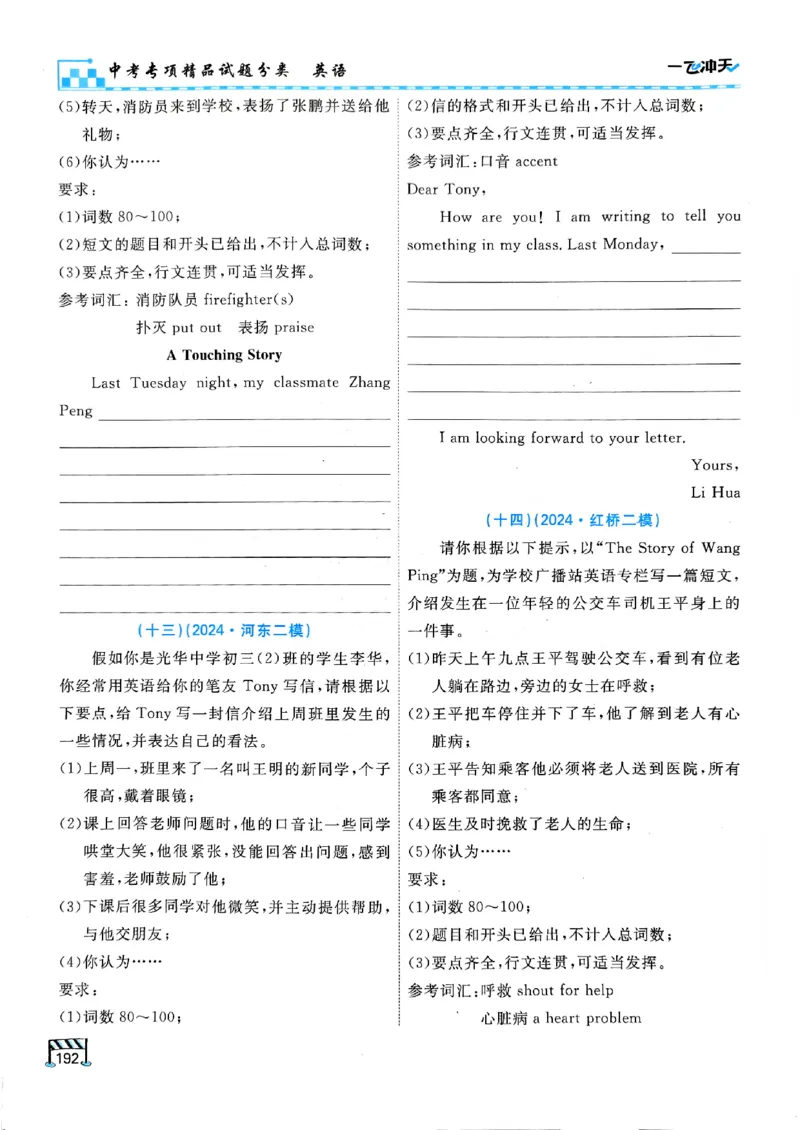 中考专项精品试题分类 英语
一飞冲天
(5)转天,消防员来到学校,表扬了张鹏并送给他
礼物;
(6)你认为……
要求:
(1)词数 80～100;
(2)短文的题目和开头已给出,不计入总词数;
(3)要点齐全,行文连贯,可适当发挥。
参考词汇: 消防队员 firefighter(s)
扑灭 put out 表扬 praise
A Touching Story
Last Tuesday night, my classmate Zhang
Peng
(十三)(2024·河东二模)
假如你是光华中学初三(2)班的学生李华,
你经常用英语给你的笔友 Tony 写信,请根据以
下要点,给 Tony 写一封信介绍上周班里发生的
一些情况,并表达自己的看法。
(1)上周一,班里来了一名叫王明的新同学,个子
很高,戴着眼镜;
(2)课上回答老师问题时,他的口音让一些同学
哄堂大笑,他很紧张,没能回答出问题,感到
害羞,老师鼓励了他;
(3)下课后很多同学对他微笑,并主动提供帮助,
与他交朋友;
(4)你认为……
要求:
(1)词数 80～100;
(2)信的格式和开头已给出,不计入总词数;
(3)要点齐全,行文连贯,可适当发挥。
参考词汇:口音 accent
Dear Tony,
How are you! I am writing to tell you
something in my class. Last Monday,
I am looking forward to your letter.
Yours,
Li Hua
(十四)(2024·红桥二模)
请你根据以下提示,以“The Story of Wang
Ping”为题,为学校广播站英语专栏写一篇短文,
介绍发生在一位年轻的公交车司机王平身上的
一件事。
(1)昨天上午九点王平驾驶公交车,看到有位老
人躺在路边,旁边的女士在呼救;
(2)王平把车停住并下了车,他了解到老人有心
脏病;
(3)王平告知乘客他必须将老人送到医院,所有
乘客都同意;
(4)医生及时挽救了老人的生命;
(5)你认为……
要求:
(1)词数 80～100;
(2)题目和开头已给出,不计入总词数;
(3)要点齐全,行文连贯,可适当发挥。
参考词汇:呼救 shout for help
心脏病 a heart problem
192